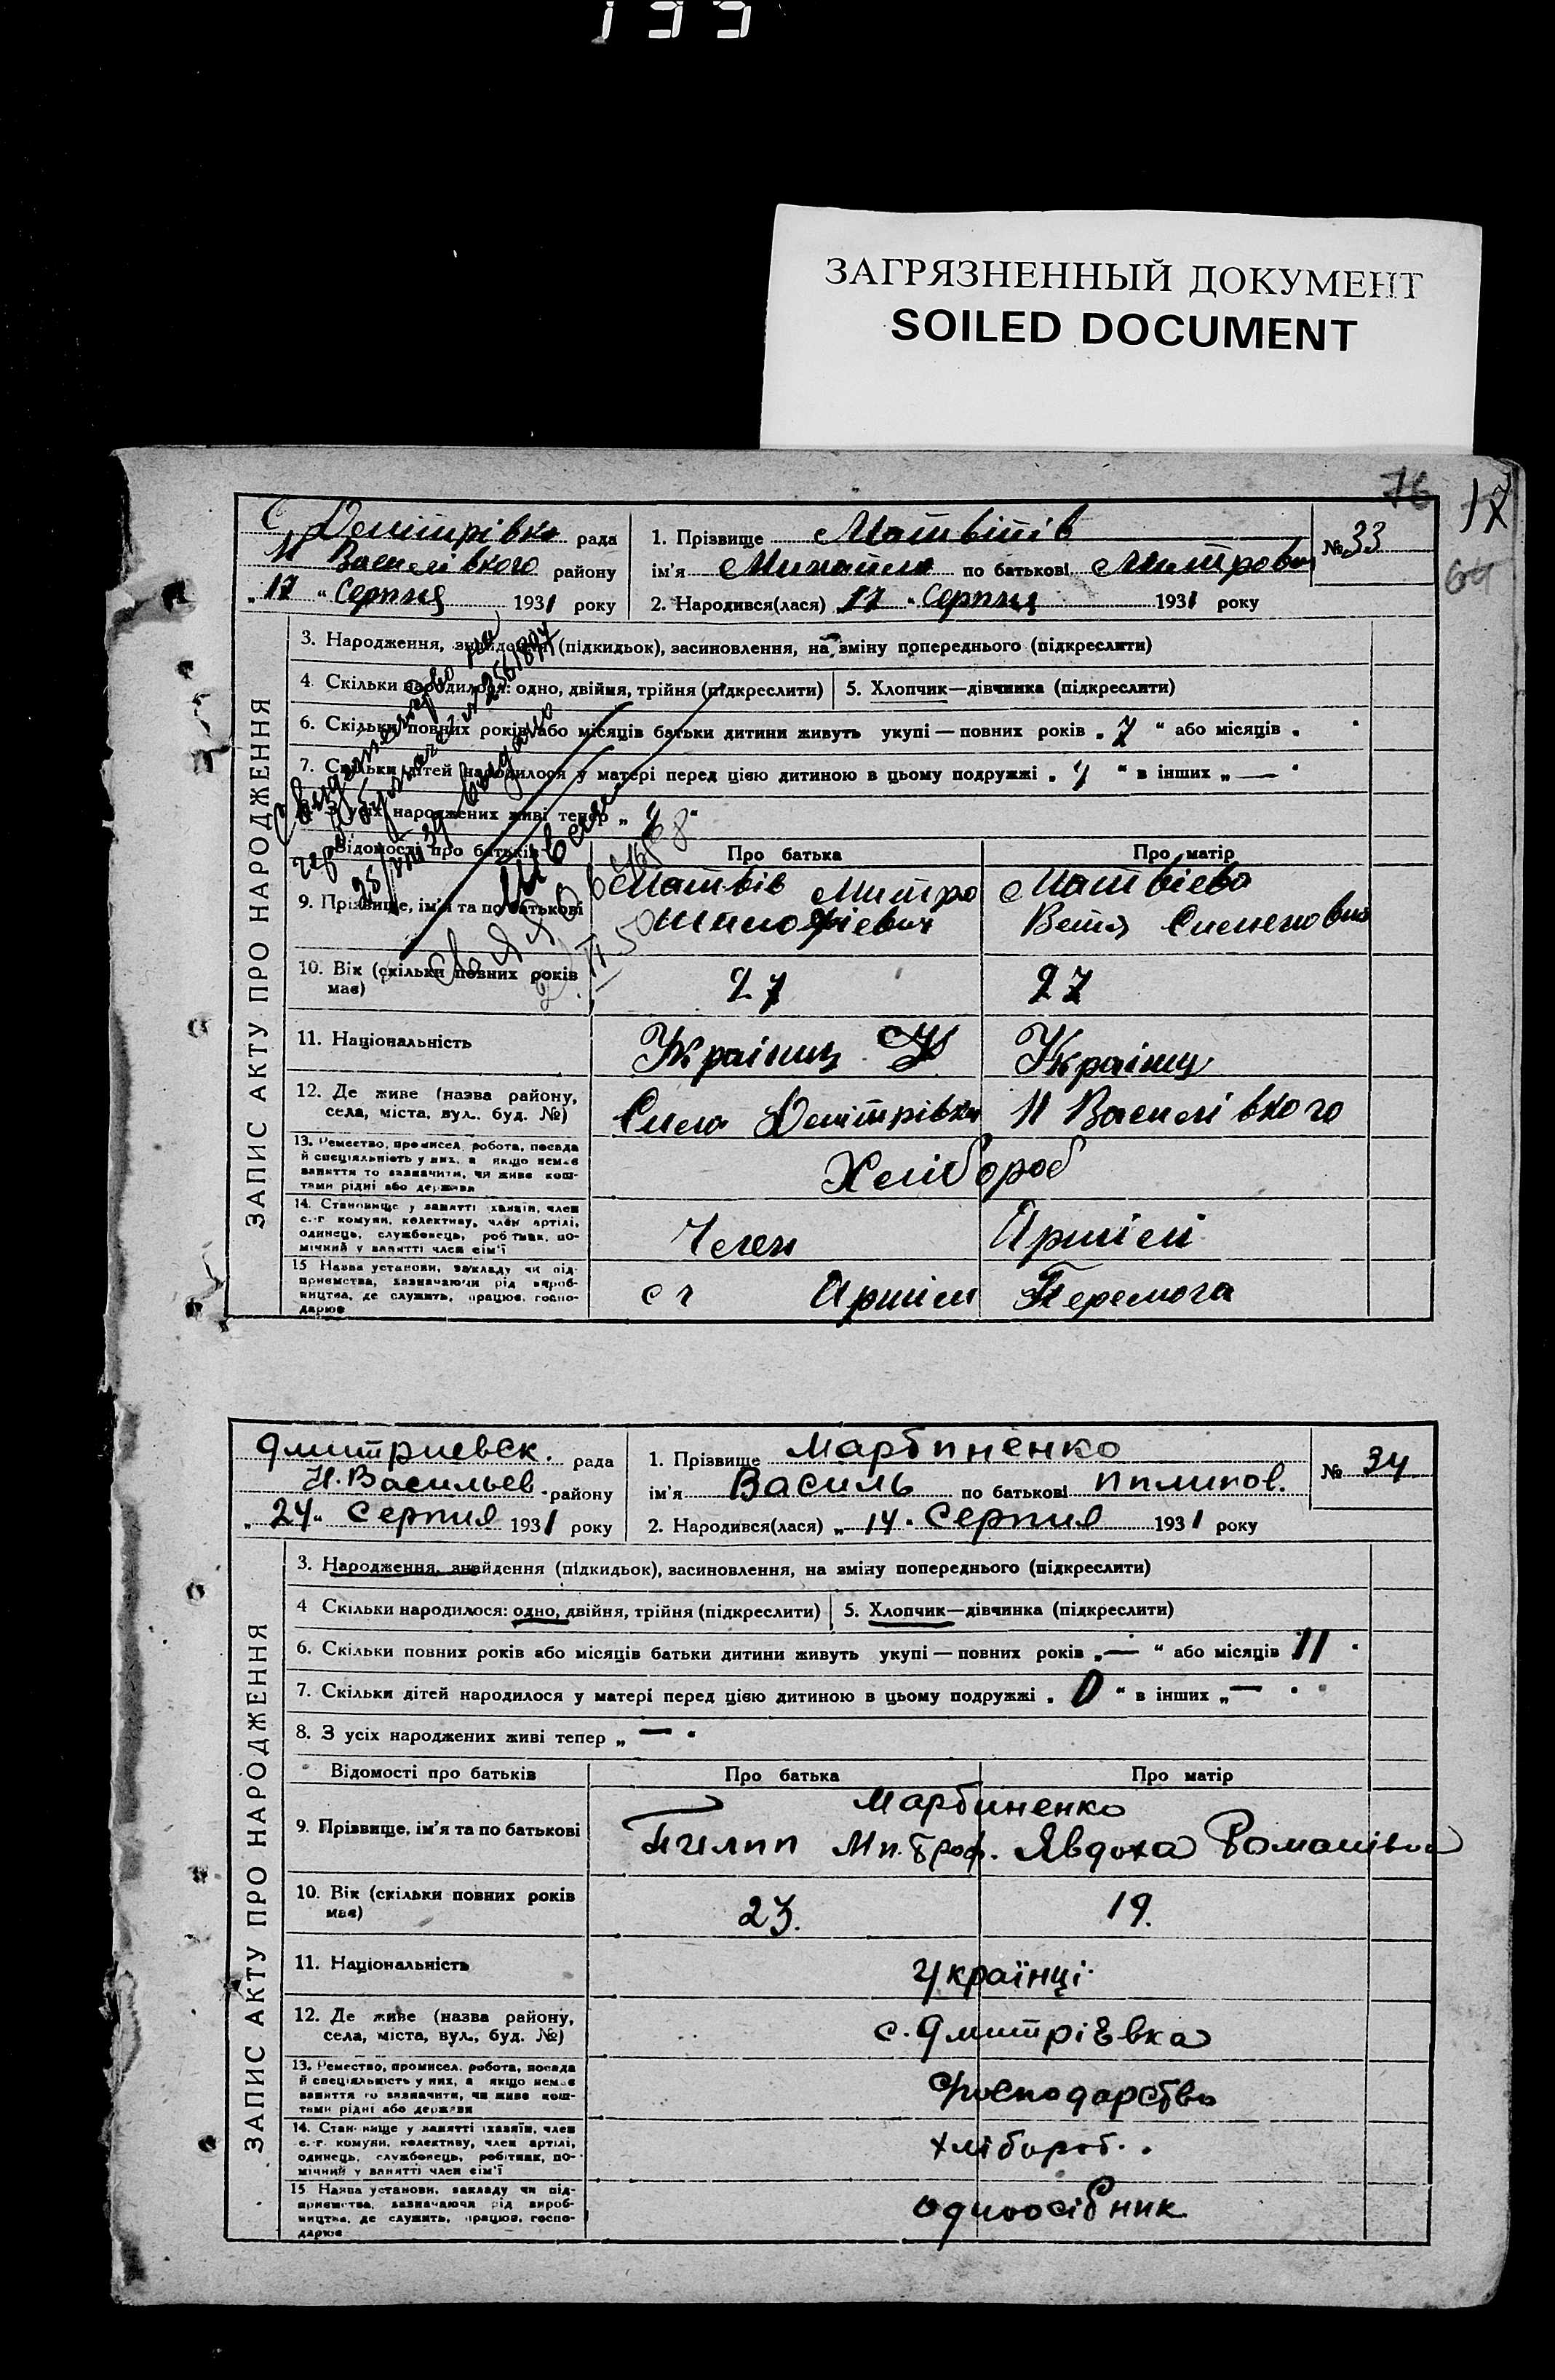 ЗАГРЯЗНЕННЫЙ ДОКУМЕНТ
SOILED DOCUMENT
76
17
64
ЗАПИС АКТУ ПРО НАРОДЖЕННЯ
С. Демітрівка рада
Н Василівкого району
„17 “ Серпня 1931 року
1. Прізвище
ім'я Михайло по батькові Митрович
№ 33
2. Народився(лася) „17 “ Серпня 1931 року
3. Народження, знайдення (підкидьок), засиновлення, на зміну попереднього (підкреслити)
4 Скільки народилося: одно, двійня, трійня (підкреслити)
5. Хлопчик—дівчинка (підкреслити)
6. Скільки повних років або місяців батьки дитини живуть укупі — повних років „ 7 “ або місяців „
7. Скільки дітей народилося у матері перед цією дитиною в цьому подружжі „ “ в інших „ — “
усіх народжених живі тепер „
Відомості про батьків
Про батька
Про матір
9. Прізвище, ім'я та по батькові
Матвів Митро
Матвієва
10. Вік (скільки повних років має)
27
27
11. Національність
Українц
Українц
12. Де живе (назва району, села, міста, вул. буд. №)
Село Демітрівка Н Василівкого
13. Ремество, промисел, робота, посада
й спеціяльність у них, а якщо немає
заняття то зазначити, чи живе кош-
тами рідні або держави
Хлібороб
14. Становище у занятті хазяїн, член
с.-г. комуни, колективу, член артілі,
одинець, службовець, робітник, по-
мічний у занятті член сім'ї
Член Артілі
15 Назва установи, закладу чи під-
приємства, зазначаючи рід вироб-
ництва, де служить, працює, госпо-
дарює
с г Артіли Перемога
ЗАПИС АКТУ ПРО НАРОДЖЕННЯ
Дмитриевск. рада
Н. Васильев. району
„ 24 “ Серпня 1931 року
1. Прізвище Марбиненко
ім'я Василь по батькові Пилипов.
№ 34
2. Народився(лася) „ 14 “ Серпня 1931 року
3. Народження, знайдення (підкидьок), засиновлення, на зміну попереднього (підкреслити)
4 Скільки народилося: одно, двійня, трійня (підкреслити)
5. Хлопчик—дівчинка (підкреслити)
6. Скільки повних років або місяців батьки дитини живуть укупі — повних років „ — “ або місяців 11
7. Скільки дітей народилося у матері перед цією дитиною в цьому подружжі „ 0 “ в інших „ — “
8. З усіх народжених живі тепер „ — “
Відомості про батьків
Про батька
Про матір
9. Прізвище, ім'я та по батькові
Марбиненко
Пилип Митроф. Явдоха Романівна
10. Вік (скільки повних років має)
23.
19.
11. Національність
Українці
12. Де живе (назва району, села, міста, вул., буд. №)
с. Дмитрієвка
13. Ремество, промисел, робота, посада
й спеціяльність у них, а якщо немає
заняття то зазначити, чи живе кош-
тами рідні або держави
Господарство
14. Становище у занятті хазяїн, член
с.-г. комуни, колективу, член артілі,
одинець, службовець, робітник, по-
мічний у занятті член сім'ї
хлібороб.
15 Назва установи, закладу чи під-
приємства, зазначаючи рід вироб-
ництва, де служить, працює, госпо-
дарює
одноосібник